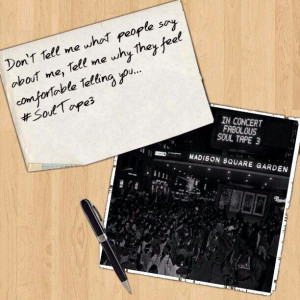 Don't tell me what people say
about me, tell me why they feel
comfortable telling you...
#SoulTape3
IN CONCERT
FABOLOUS
SOUL TAPE 3
MADISON SQUARE GARDEN